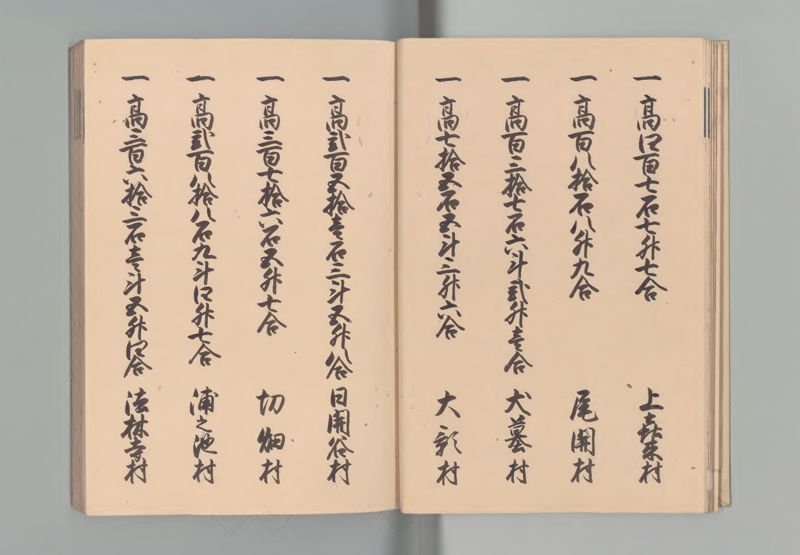 一 高四百七石七升七合 上喜来村
一 高百八拾石八升九合 尾開村
一 高百三拾七石六斗弐升壱合 犬墓村
一 高七拾五石五斗三升六合 大影村
一 高弐百五拾壱石三斗五升八合 日開谷村
一 高三百七拾六石五升七合 切畑村
一 高弐百八拾八石九斗四升七合 浦之池村
一 高三百六拾三石壱斗五升四合 法林寺村